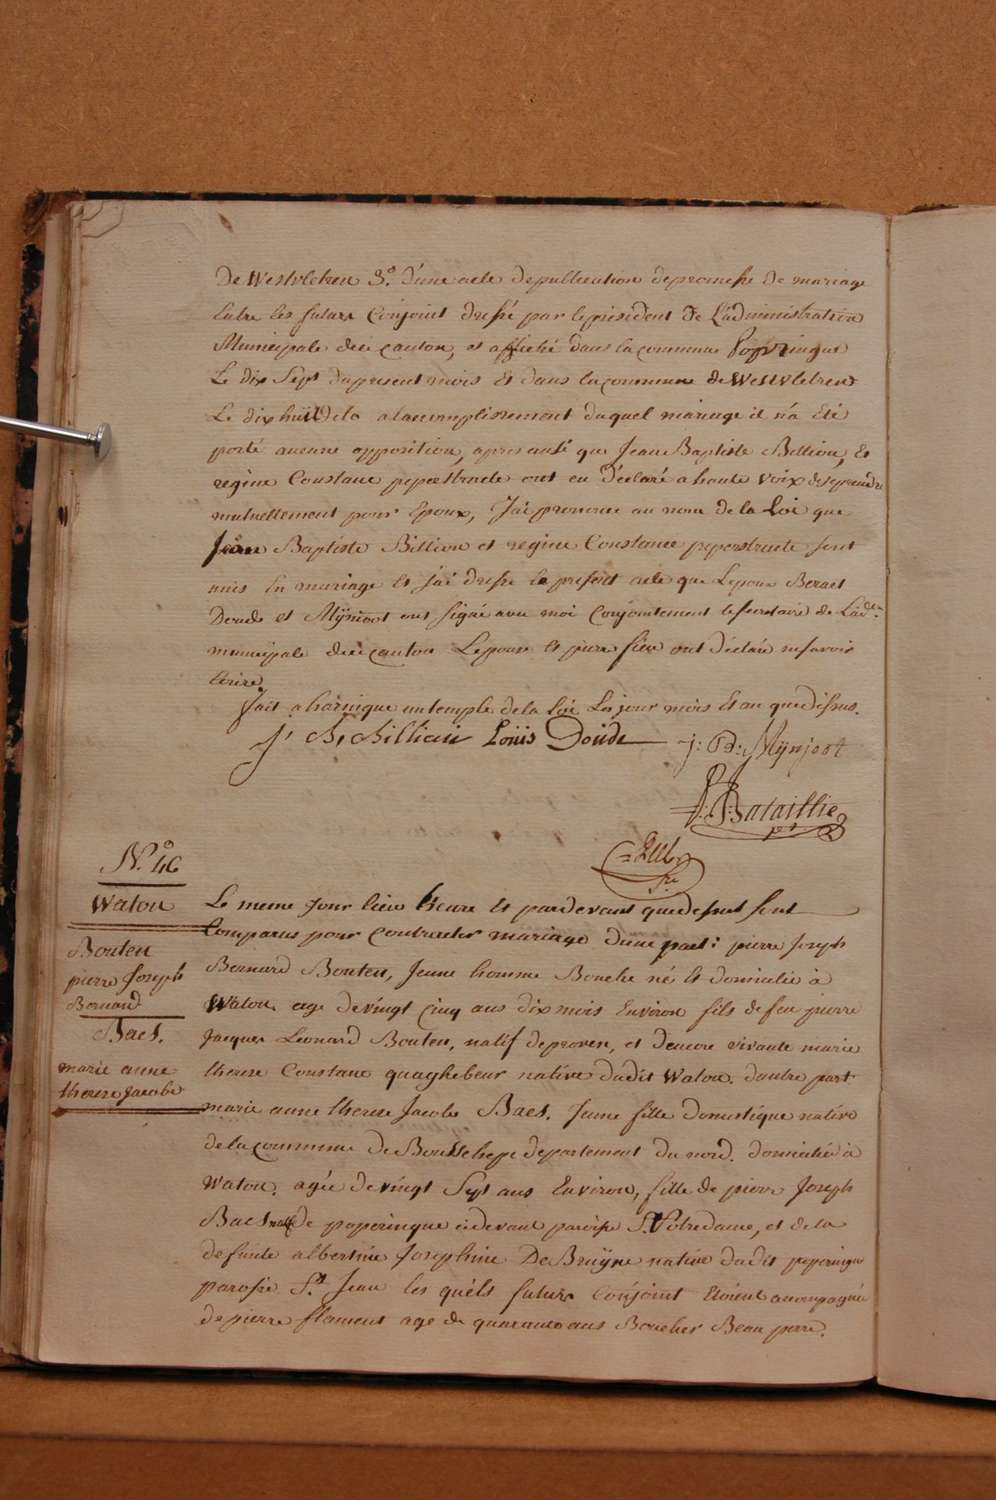 De Westvletren 3.º d'une acte de publication de promesse de mariage
Entre les futurs Conjoint dressé par le président de L'administration
Municipale de ce canton, et affiché dans la commune Poperingue
Le dix Sept du present mois Et dans la commune de Westvletren
Le dix huit dela a laccomplissement duquel mariage il n'a Eté
porté aucune opposition, apres aussi que Jean Baptiste Billion, Et
regine Constance peperstracte ont eu déclaré a haute voix de se prendre
mutuellement pour Epoux, J'ai prononcé au nom de la Loi que
Jean Baptiste Billion et regine Constance peperstracte sont
unis En mariage Et j'ai dressé le present acte que Lepoux
Doude et Mÿnjoot ont signé avec moi Conjointement le secretaire de L'adon.
municipale de ce canton Lepouse Et ont déclaré ne savoir
Ecrire
fait a haringue en temple de la Loi Les jour mois Et an que dessus.
J. B. Billiain Louis Doude j: B: Mÿnjoot
Bataillie
N.º 46
Watou
Bouten
pierre Joseph
Bernard
Baes.
marie anne
therese Jacobe
Le meme Jour lieu heure Et pardevant que dessus sont
Comparus pour Contracter mariage d'une part: pierre Joseph
Bernard Bouten, Jeune homme Bouche né Et domicilié à
Watou age de vingt Cinq ans dix mois Environ fils de feu pierre
Jacques Leonard Bouten, natif de proven, et d'encore vivante marie
therese Constance quaghebeur native dudit Watou. dautre part
marie anne therese Jacobe Baes. Jeune fille domestique native
de la commune de departement du nord. domiciliée à
Watou. agée de vingt Sept ans Environ, fille de pierre Joseph
Baes natif de poperingue cidevant paroisse N.tre dame, et de la
defunte albertine Josephine De Bruÿne native dudit poperingue
paroisse S.t Jean les quéls futurs Conjoint Etoient accompagné
de pierre flament age de quarante ans Boucher Beau pere.